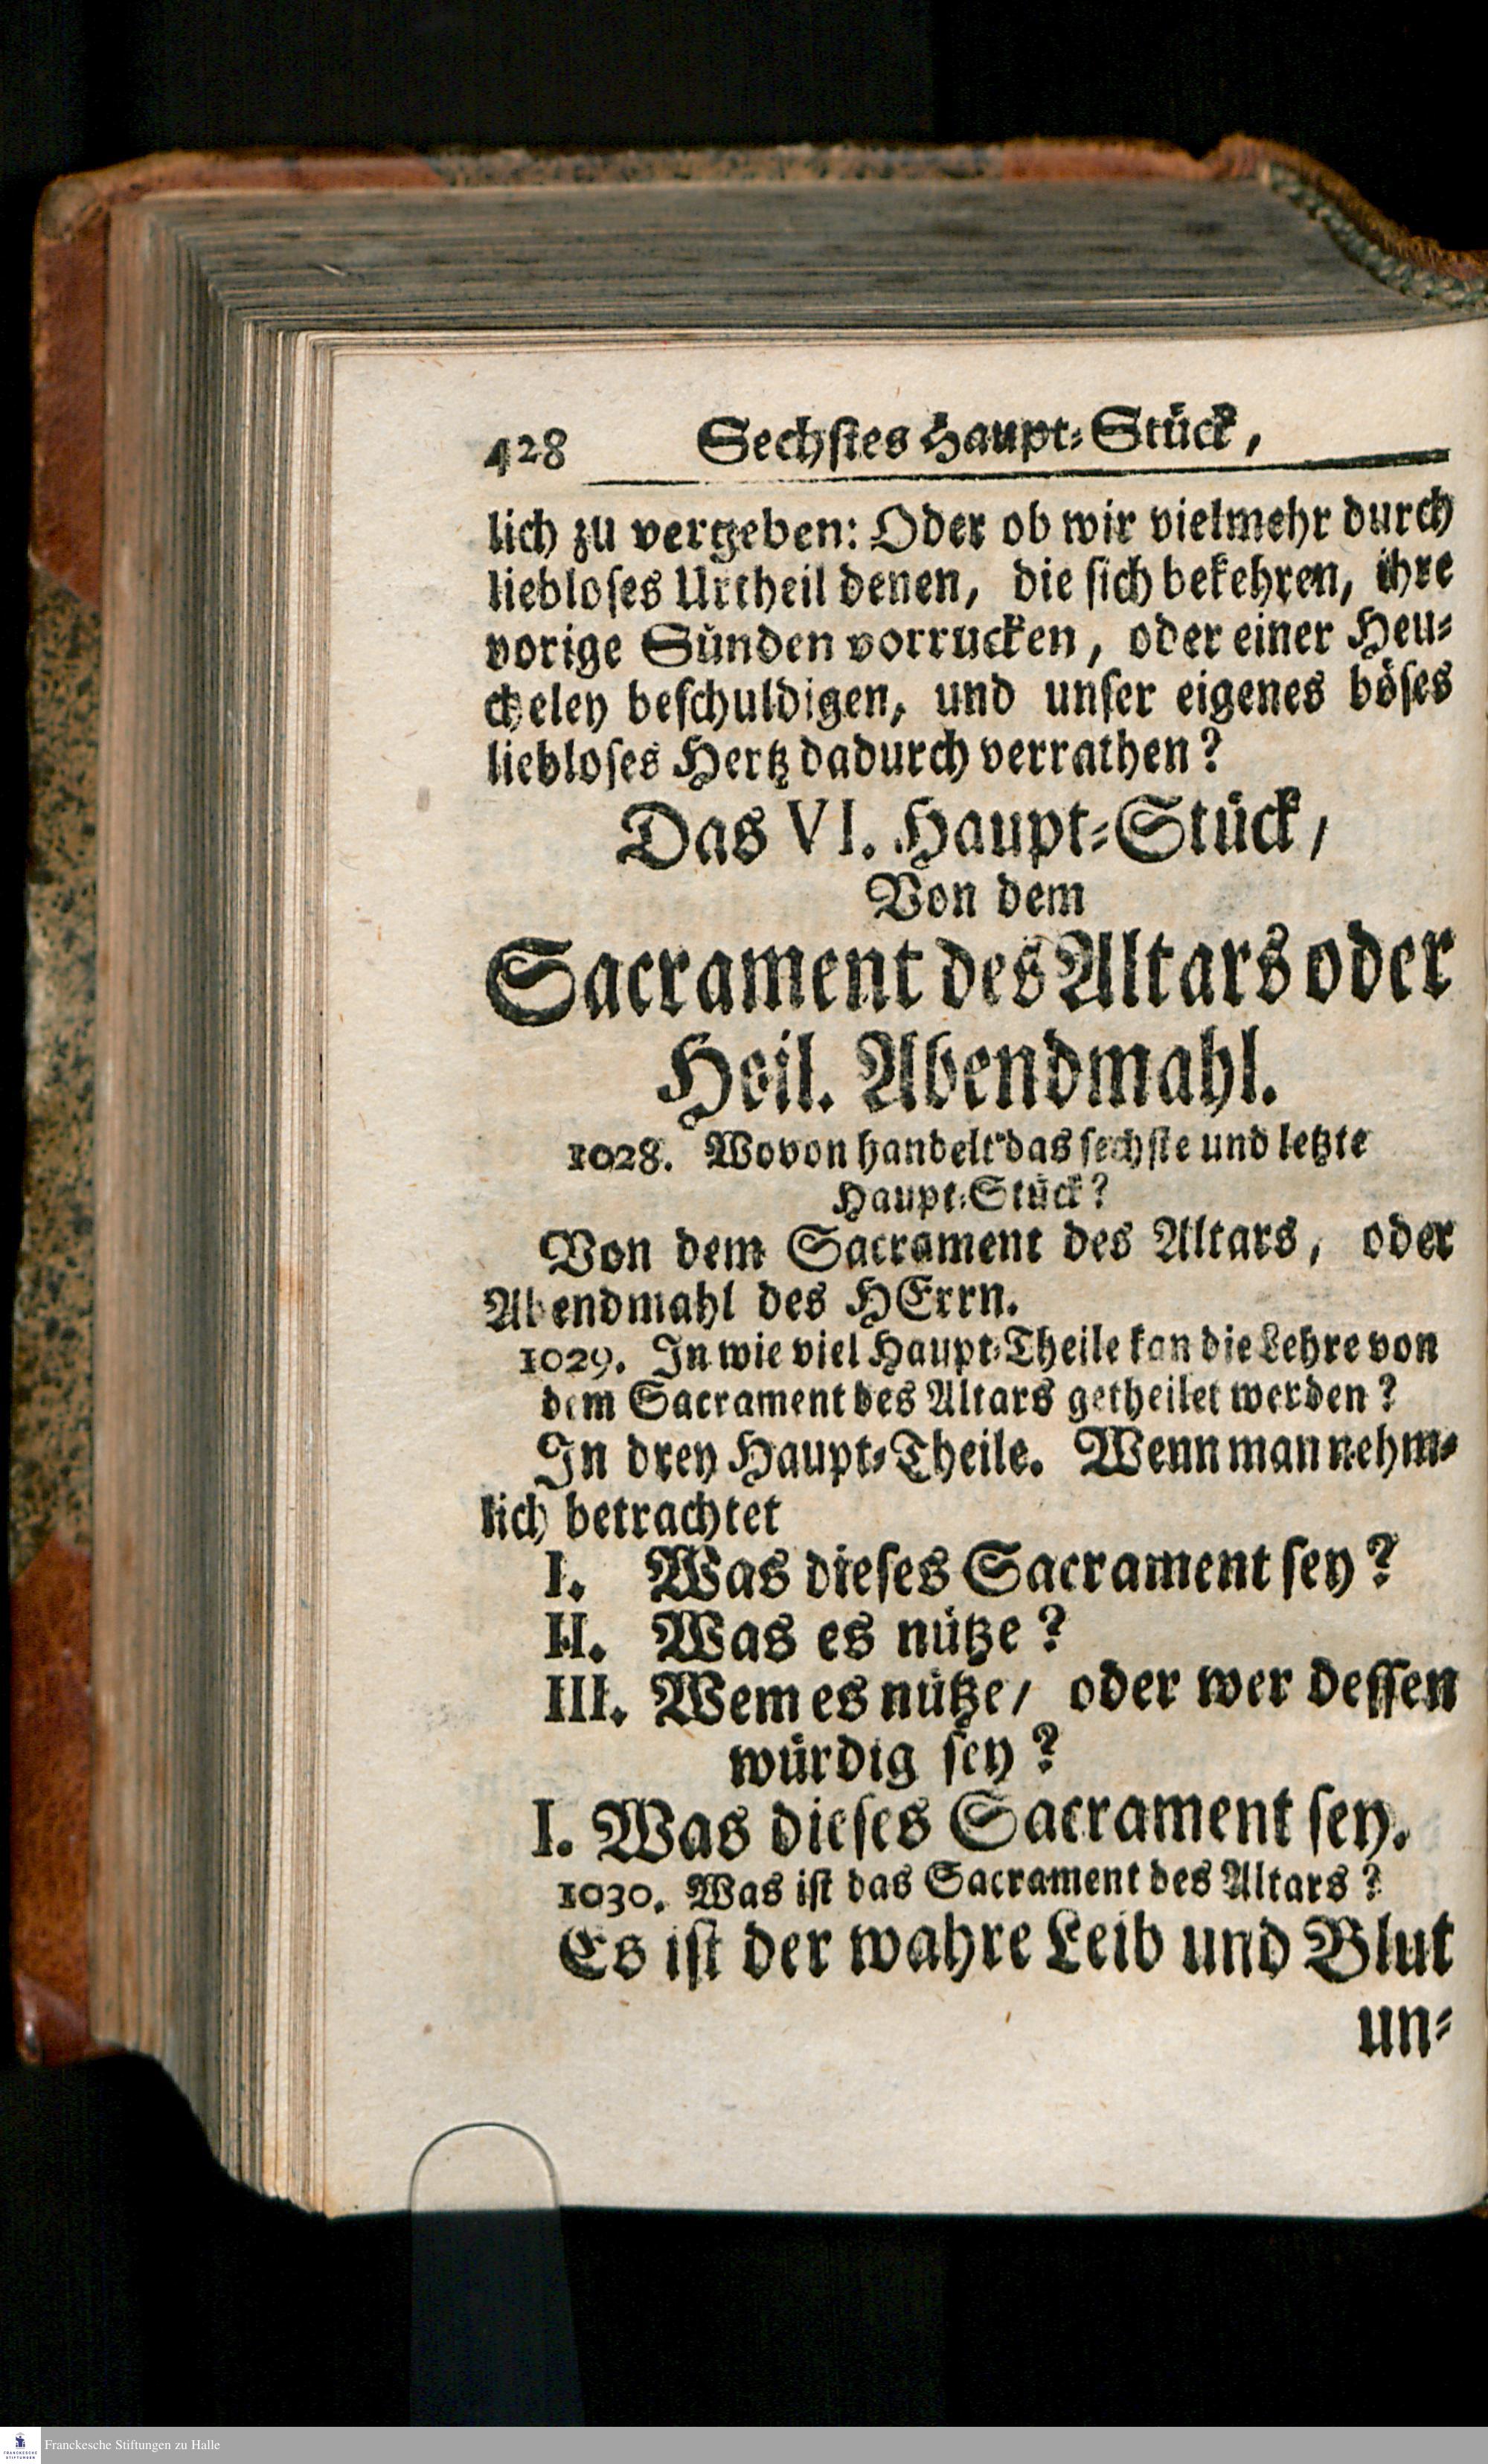 428 Sechstes Haupt-Stück,
lich zu vergeben: Oder ob wir vielmehr durch
liebloses Urtheil denen, die sich bekehren, ihre
vorige Sünden vorrucken, oder einer Heu-
cheley beschuldigen, und unser eigenes böses
liebloses Hertz dadurch verrathen?
Das VI. Haupt-Stück/
Von dem
Sacrament des Altars oder
Heil. Abendmahl.
1028. Wovon handelt das sechste und letzte
Haupt-Stück?
Von dem Sacrament des Altars, oder
Abendmahl des HErrn.
1029. In wie viel Haupt-Theile kan die Lehre von
dem Sacrament des Altars getheilet werden?
In drey Haupt-Theile. Wenn man nehm-
lich betrachtet
I. Was dieses Sacrament sey?
II. Was es nütze?
III. Wem es nütze/ oder wer dessen
würdig sey?
I. Was dieses Sacrament sey.
1030. Was ist das Sacrament des Altars?
Es ist der wahre Leib und Blut
un-
FRANCKESCHE STIFTUNGEN
Franckesche Stiftungen zu Halle